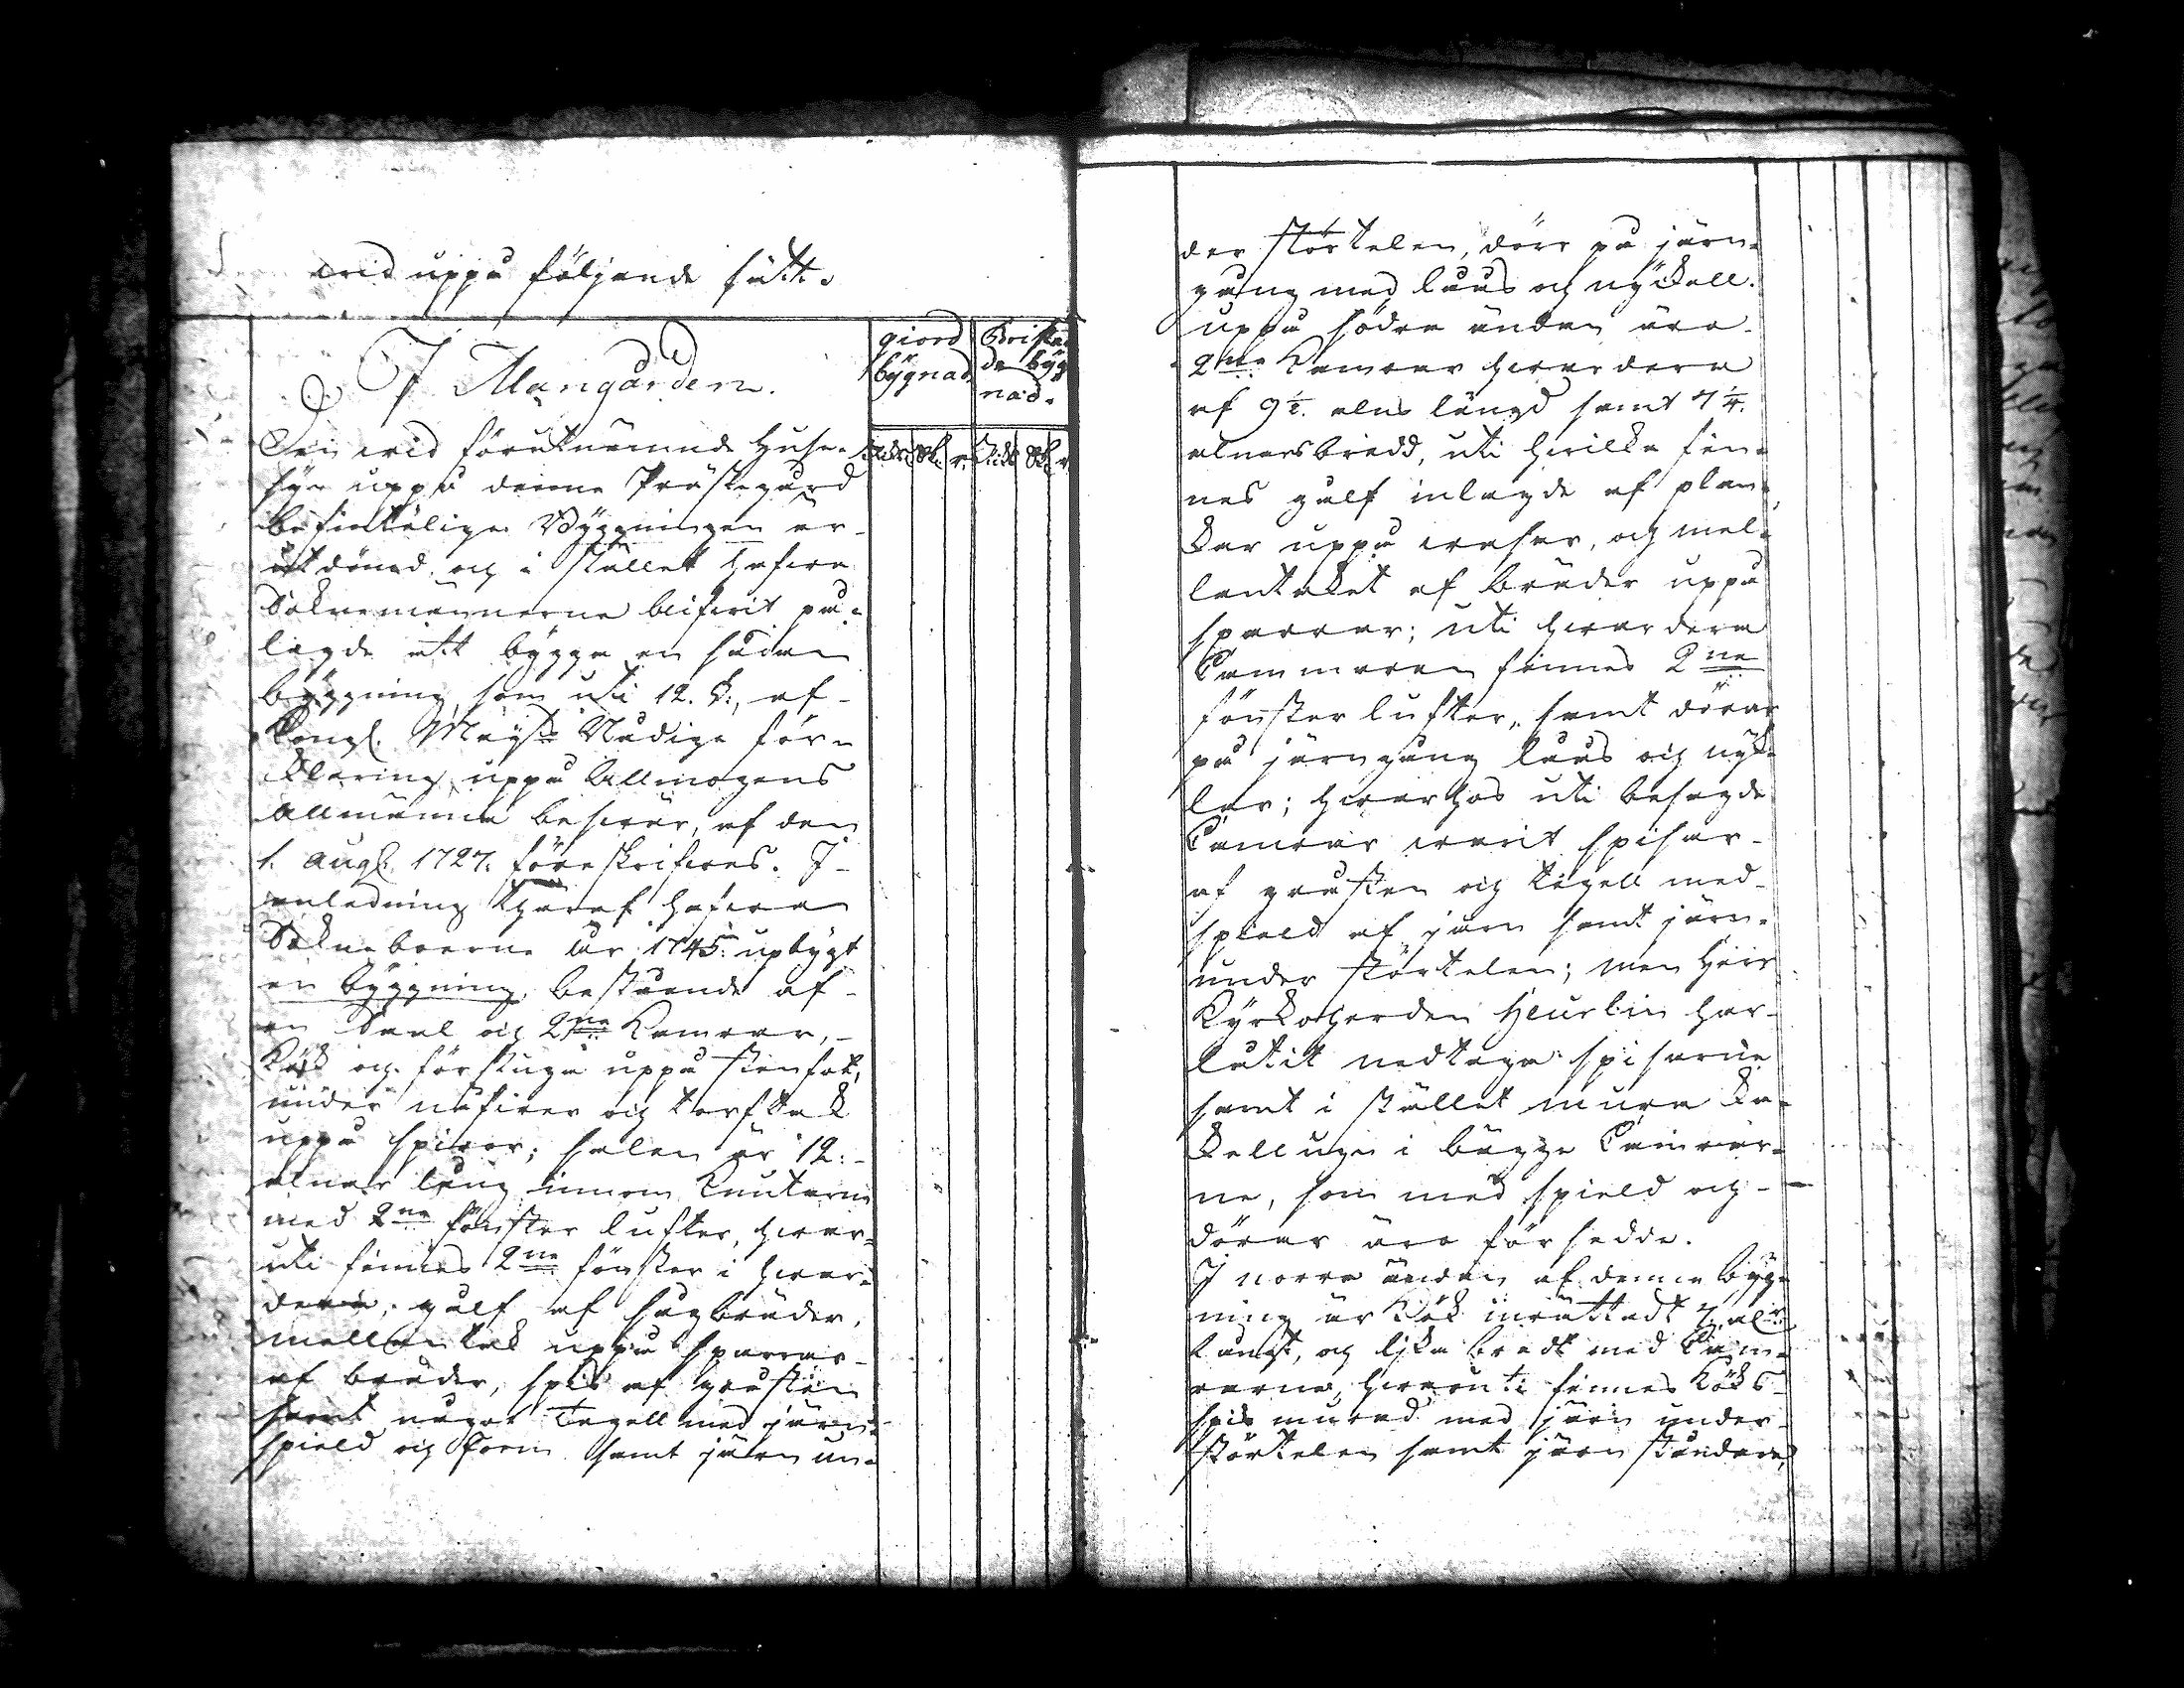 wid uppå följande sätt.
I Mangården.
giord
bygnad.
Bristan
de byg
nad.
Den wid förutnämnde Huse-
syn uppå denne Prästegård
befinteliga Byggningen är
utdömd, och i stället hafwa
Soknemännerne blifwit på-
lagde att bygga en sådan
byggning som uti 12. §:, af
Kongl. Maijts Nådige för-
klaring uppå Allmogens
Allmänna beswär, af den
1. Aug. 1727. föreskrifwes. I
anledning häraf hafwa
Sokneboerne år 1745. upbygt
en byggning, bestående af
en Saal och 2ne Kamrar,
Kök och förstuga uppå stenfot,
under näfwer och torftak
uppå spiror; salen är 12:
alnar lång innom Knutarne
med 2ne fönster lufter, hwar-
uti finnes 2ne fönster i hwar-
dera, gulf af sugbräder,
mellantak uppå sparrar
af bräder, spis af gråsten
samt något Tegell med järn-
spield och form samt järn un-
der störtelen, dörr på järn-
gång med låås och nyckell.
uppå södra ändan äro
2ne Kamrar hwardera
af 9 1/2. alns längd samt 7 1/4.
alnarsbredd, uti hwilka fin-
nes gulf inlagde af plan-
kar uppå wasar, och mel-
lantaket af bräder uppå
sparrar; uti hwardera
Cammaren finnes 2ne
fönsterlufter, samt dörar
på järngång låås och nyck-
lar; hwarhos uti besagde
Camrar warit spisar
af gråsten och tegell med
spield af järn samt järn
under störtelen; men Herr
Kyrkoherden Heurlin har
låtit nedtaga spisarne
samt i stället mura Ka-
kellugn i bägge Camrar-
ne, som med spield och
dörar äro försedde.
I norra ändan af denna byg-
ning är Kök inrättadt 7. aln:
långt, och lika bredt med Cam-
rarne, hwaruti finnes Köks-
spis murad med järn under
störtelen samt järn ståndare,